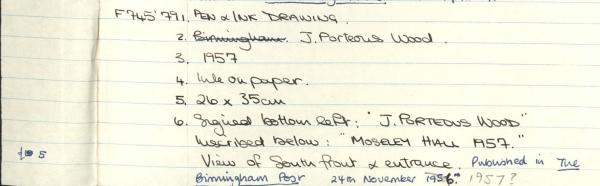 F745'79 1. PEN & INK DRAWING.
2. Birmingham. J. Porteous Wood.
3. 1957
4. Ink on paper.
5. 26 x 35cm
6. Signed bottom left: "J. PORTEOUS WOOD"
Inscribed below: "MOSELEY HALL 1957."
View of South front & entrance. Published in The
5
Birmingham Post 24th November 1956." 1957?